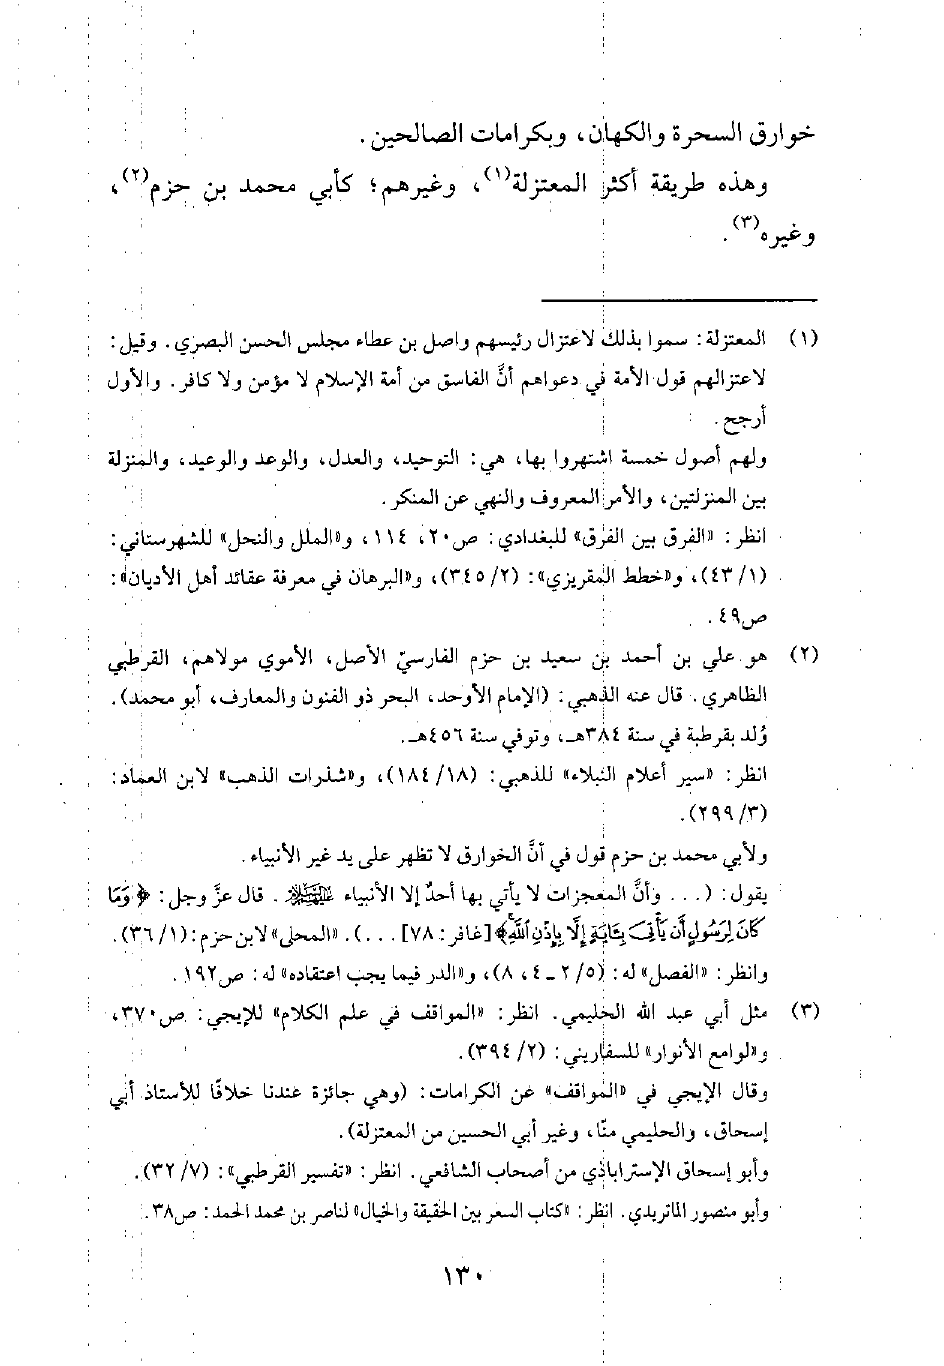 خوارق السحرة والكهان، وبكرامات الصالحين.
وهذه طريقة أكثر المعتزلة(١)، وغيرهم؛ كأبي محمد بن حزم(٢)،
وغيره(٣).
(١) المعتزلة: سموا بذلك لاعتزال رئيسهم واصل بن عطاء مجلس الحسن البصري. وقيل:
لاعتزالهم قول الأمة في دعواهم أنَّ الفاسق من أمة الإسلام لا مؤمن ولا كافر. والأول
أرجح.
ولهم أصول خمسة اشتهروا بها، هي: التوحيد، والعدل، والوعد والوعيد، والمنزلة
بين المنزلتين، والأمر المعروف والنهي عن المنكر.
انظر: «الفرق بين الفرق» للبغدادي: ص٢٠، ١١٤، و«الملل والنحل» للشهرستاني:
(١/٤٣)، و«خطط المقريزي»: (٢/٣٤٥)، و«البرهان في معرفة عقائد أهل الأديان»:
ص٤٩.
(٢) هو علي بن أحمد بن سعيد بن حزم الفارسيّ الأصل، الأموي مولاهم، القرطبي
الظاهري. قال عنه الذهبي: (الإمام الأوحد، البحر ذو الفنون والمعارف، أبو محمد).
وُلد بقرطبة في سنة ٣٨٤هـ، وتوفي سنة ٤٥٦هـ.
انظر: «سير أعلام النبلاء» للذهبي: (١٨/١٨٤)، و«شذرات الذهب» لابن العماد:
(٣/٢٩٩).
ولأبي محمد بن حزم قول في أنَّ الخوارق لا تظهر على يد غير الأنبياء.
يقول: (... وأنَّ المعجزات لا يأتي بها أحدٌ إلا الأنبياء عليهم السلام. قال عزَّ وجل: ﴿وَمَا
كَانَ لِرَسُولٍ أَن يَأْتِيَ بِـَٔايَةٍ إِلَّا بِإِذْنِ ٱللَّهِ﴾ [غافر: ٧٨] ...). «المحلى» لابن حزم: (١/٣٦).
وانظر: «الفصل» له: (٥/٢ ـ ٤، ٨)، و«الدر فيما يجب اعتقاده» له: ص١٩٢.
(٣) مثل أبي عبد الله الحليمي. انظر: «المواقف في علم الكلام» للإيجي: ص٣٧٠،
و«لوامع الأنوار» للسفاريني: (٢/٣٩٤).
وقال الإيجي في «المواقف» عن الكرامات: (وهي جائزة عندنا خلافًا للأستاذ أبي
إسحاق، والحليمي منّا، وغير أبي الحسين من المعتزلة).
وأبو إسحاق الإستراباذي من أصحاب الشافعي. انظر: «تفسير القرطبي»: (٧/٣٢).
وأبو منصور الماتريدي. انظر: «كتاب السحر بين الحقيقة والخيال» لناصر بن محمد الحمد: ص٣٨.
١٣٠